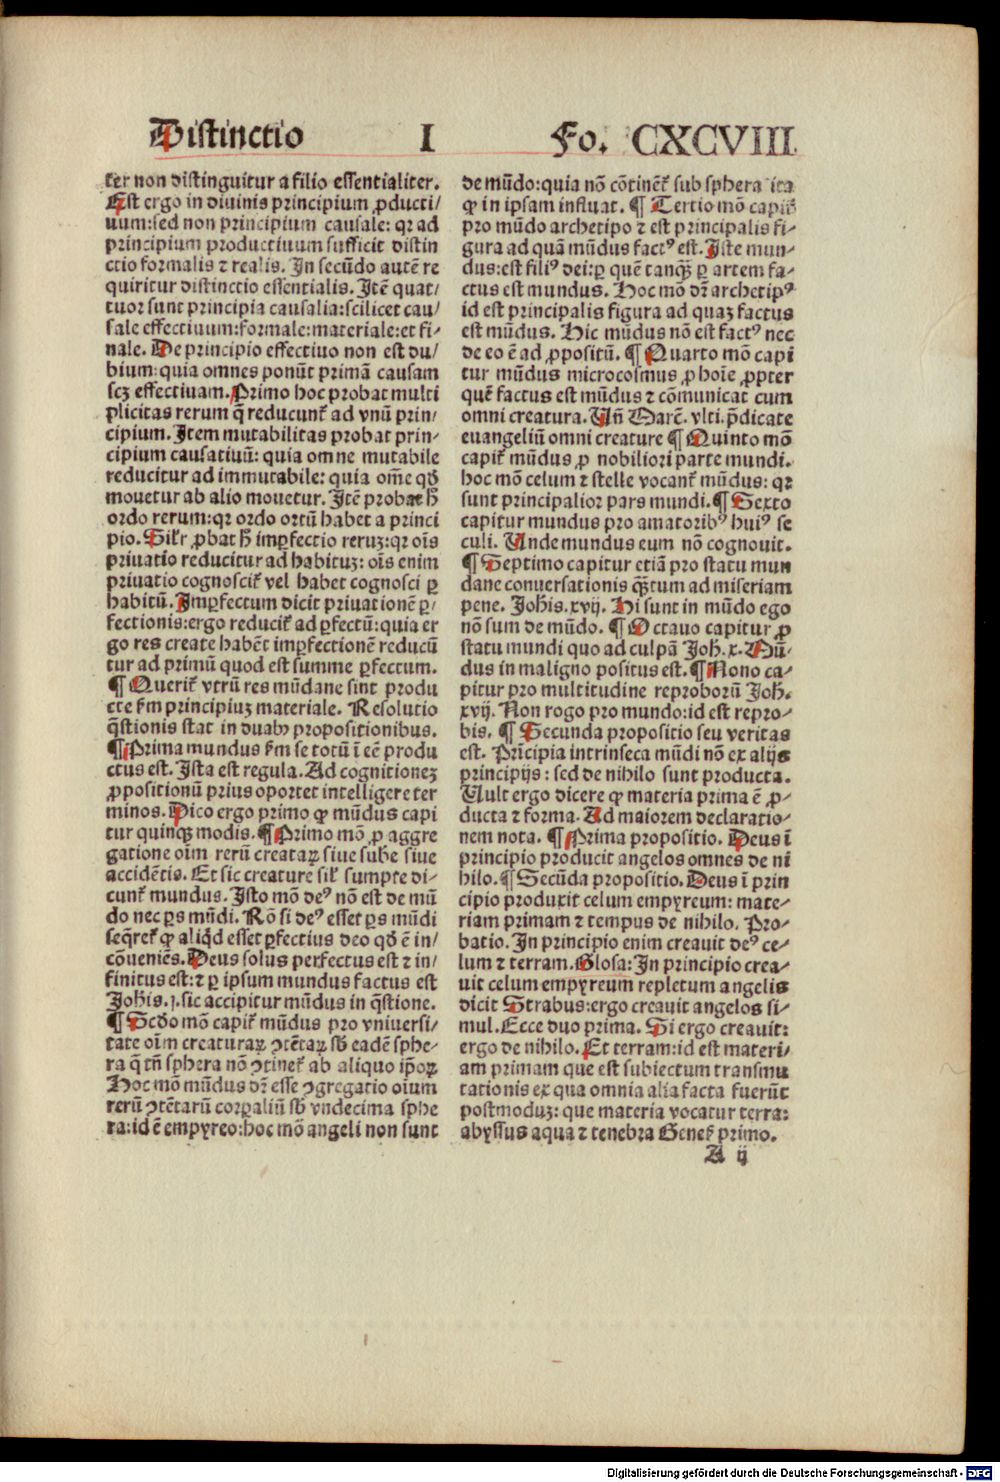 Distinctio I Fo. CXCVIII
ter non distinguitur a filio essentialiter.
Est ergo in diuinis principium ꝓducti/
uum:sed non principium causale: qꝛ ad
principium productiuum sufficit distin
ctio formalis ⁊ realis. In secūdo autē re
quiritur distinctio essentialis. Itē quat/
tuor sunt principia causalia:scilicet cau/
sale effectiuum:formale:materiale:et fi-
nale. De principio effectiuo non est du/
bium:quia omnes ponūt primā causam
scꝫ effectiuam. Primo hoc probat multi
plicitas rerum q̄ reducunt᷑ ad vnū prin/
cipium. Item mutabilitas probat prin-
cipium causatiuū: quia omne mutabile
reducitur ad immutabile: quia om̄e qd̄
mouetur ab alio mouetur. Itē probat h̄
ordo rerum:qꝛ ordo ortū habet a princi
pio. Silr̄ ꝓbat h̄ imꝑfectio reruꝫ:qꝛ oīs
priuatio reducitur ad habituꝫ: oīs enim
priuatio cognoscit᷑ vel habet cognosci ꝑ
habitū. Imꝑfectum dicit priuationē ꝑ/
fectionis:ergo reducit᷑ ad ꝑfectū:quia er
go res create habēt imꝑfectionē reducū
tur ad primū quod est summe ꝑfectum.
¶ Querit᷑ vtrū res mūdane sint produ
cte ẜm principiuꝫ materiale. Resolutio
q̄stionis stat in duabꝰ propositionibus.
¶ Prima mundus ẜm se totū ī eē produ
ctus est. Ista est regula. Ad cognitioneꝫ
ꝓpositionū prius oportet intelligere ter
minos. Dico ergo primo ꝙ mūdus capi
tur quinqꝫ modis. ¶ Primo mō ꝓ aggre
gatione oīm rerū creataꝝ siue sub̄e siue
accidētis. Et sic creature sil᷑ sumpte di-
cunt᷑ mundus. Isto mō deꝰ nō est de mū
do nec ꝑs mūdi. Rō si deꝰ esset ꝑs mūdi
seq̄ret᷑ ꝙ aliqd̄ esset ꝑfectius deo qd̄ ē in/
cōueniēs. Deus solus perfectus est ⁊ in/
finitus est:⁊ ꝑ ipsum mundus factus est
Joh̄is. j. sic accipitur mūdus in q̄stione.
¶ Scd̄o mō capit᷑ mūdus pro vniuersi/
tate oīm creaturaꝝ ꝯtētaꝝ sb̄ eadē sphe-
ra q̄ tn̄ sphera nō ꝯtinet᷑ ab aliquo ip̄oꝝ
Hoc mō mūdus dr̄ esse ꝯgregatio oium
rerū ꝯtētarū corꝑaliū sb̄ vndecima sphe
ra:id ē empyreo:hoc mō angeli non sunt
de mūdo:quia nō cōtinēt᷑ sub sphera ita
ꝙ in ipsam influat. ¶ Tertio mō capit᷑
pro mūdo archetipo ⁊ est principalis fi-
gura ad quā mūdus factꝰ est. Iste mun-
dus:est filiꝰ dei:ꝑ quē tanqꝫ ꝑ artem fa-
ctus est mundus. Hoc mō dr̄ archetipꝰ
id est principalis figura ad quaꝫ factus
est mūdus. Hic mūdus nō est factꝰ nec
de eo ē ad ꝓpositū. ¶ Quarto mō capi
tur mūdus microcosmus ꝓ hoīe ꝓpter
quē factus est mūdus ⁊ cōmunicat cum
omni creatura. Vn̄ Marc̄. vlti. p̄dicate
euangeliū omni creature ¶ Quinto mō
capit᷑ mūdus ꝓ nobiliori parte mundi.
hoc mō celum ⁊ stelle vocant᷑ mūdus: qꝛ
sunt principalior pars mundi. ¶ Sexto
capitur mundus pro amatoribꝰ huiꝰ se
culi. Unde mundus eum nō cognouit.
¶ Septimo capitur etiā pro statu mun
dane conuersationis q̄ꝫtum ad miseriam
pene. Joh̄is. xvij. Hi sunt in mūdo ego
nō sum de mūdo. ¶ Octauo capitur ꝓ
statu mundi quo ad culpā Joh̄. x. Mū-
dus in maligno positus est. ¶ Nono ca-
pitur pro multitudine reproborū Joh̄.
xvij. Non rogo pro mundo:id est repro-
bis. ¶ Secunda propositio seu veritas
est. Prīcipia intrinseca mūdi nō ex alijs
principijs: sed de nihilo sunt producta.
Uult ergo dicere ꝙ materia prima ē ꝓ-
ducta ⁊ forma. Ad maiorem declaratio-
nem nota. ¶ Prima propositio. Deus ī
principio producit angelos omnes de ni
hilo. ¶ Secūda propositio. Deus ī prin
cipio produxit celum empyreum: mate-
riam primam ⁊ tempus de nihilo. Pro-
batio. In principio enim creauit deꝰ ce-
lum ⁊ terram. Glosa: In principio crea-
uit celum empyreum repletum angelis
dicit Strabus:ergo creauit angelos si-
mul. Ecce duo prima. Si ergo creauit:
ergo de nihilo. Et terram:id est materi/
am primam que est subiectum transmu
tationis ex qua omnia alia facta fuerūt
postmoduꝫ: que materia vocatur terra:
abyssus aqua ⁊ tenebra Genes᷑ primo.
A ij
Digitalisierung gefördert durch die Deutsche Forschungsgemeinschaft - DFG